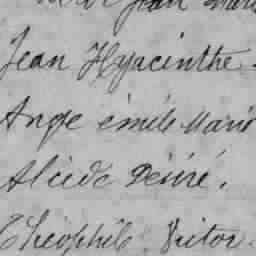 Jean Marie
Jean Hyacinthe.
Ange émile Marie
Alcide Désiré.
Théophile Victor.